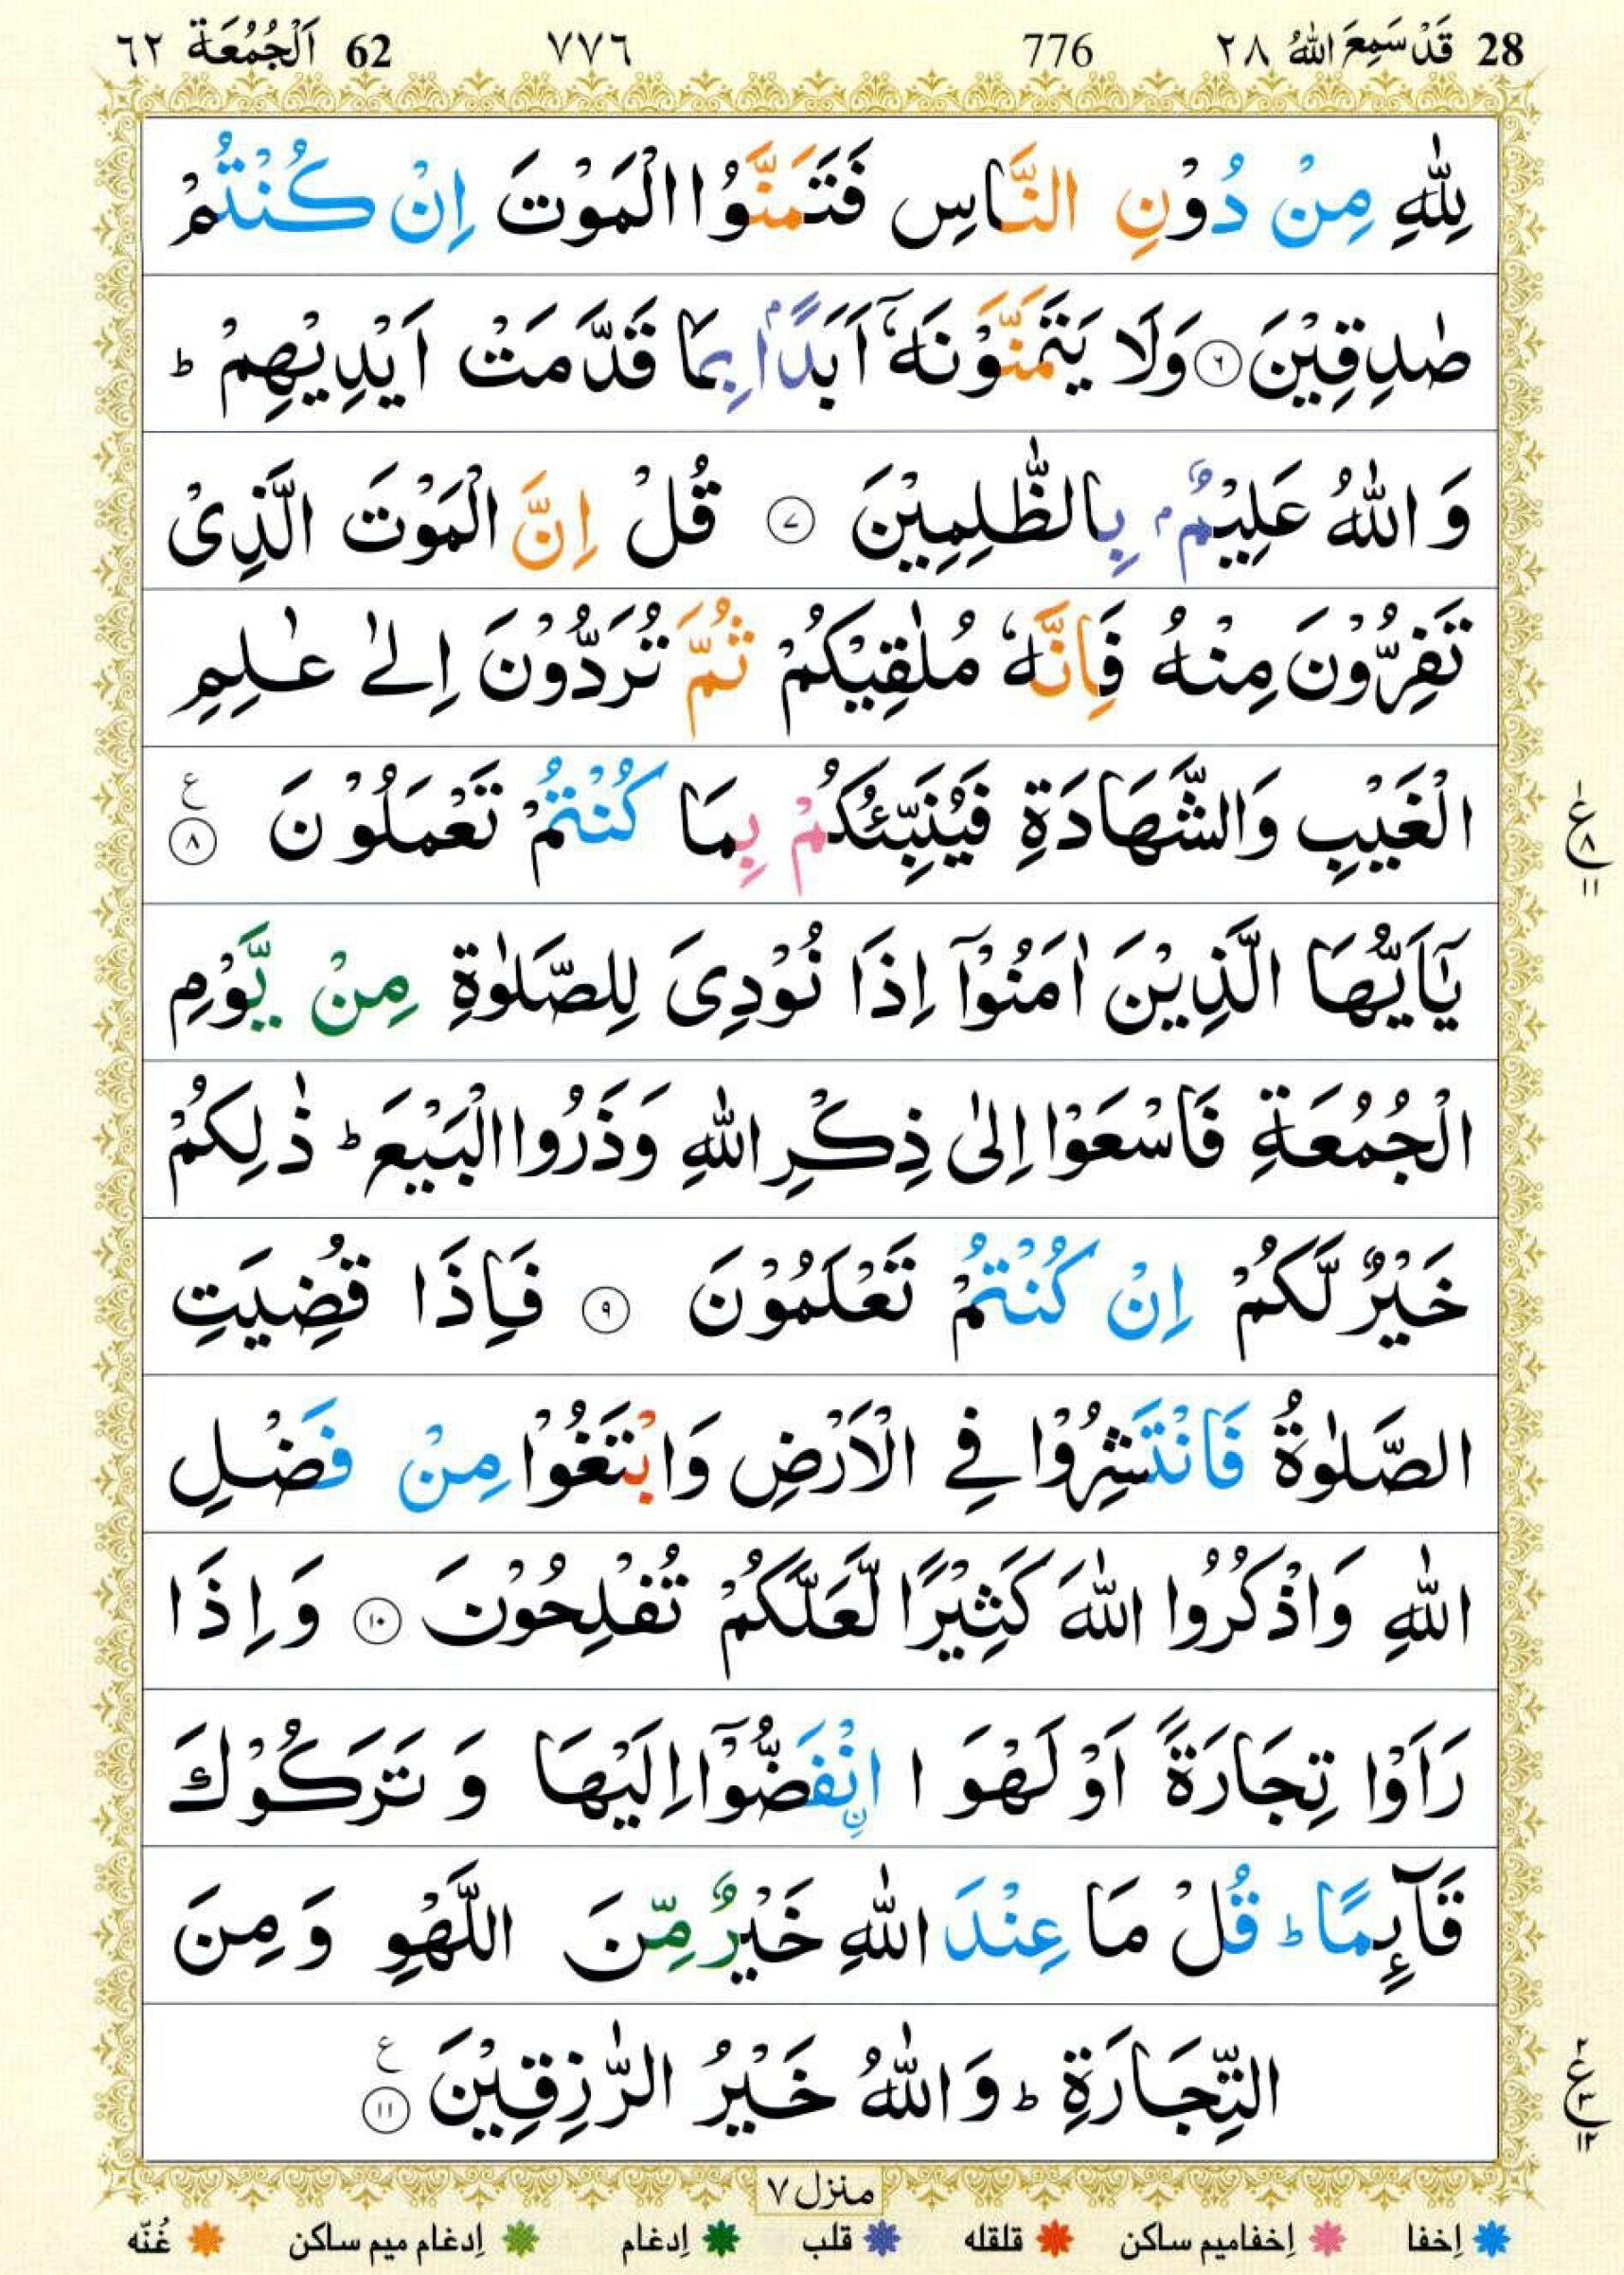 28 قَدْ سَمِعَ اللّٰهُ ٢٨ 776 ٧٧٦ 62 اَلْجُمُعَة ٦٢
لِلّٰهِ مِنْ دُوْنِ النَّاسِ فَتَمَنَّوُا الْمَوْتَ اِنْ كُنْتُمْ
صٰدِقِيْنَ ۝٦ وَلَا يَتَمَنَّوْنَهٗۤ اَبَدًۢا بِمَا قَدَّمَتْ اَيْدِيْهِمْ ؕ
وَ اللّٰهُ عَلِيْمٌۢ بِالظّٰلِمِيْنَ ۝٧ قُلْ اِنَّ الْمَوْتَ الَّذِىْ
تَفِرُّوْنَ مِنْهُ فَاِنَّهٗ مُلٰقِيْكُمْ ثُمَّ تُرَدُّوْنَ اِلٰى عٰلِمِ
الْغَيْبِ وَالشَّهَادَةِ فَيُنَبِّئُكُمْ بِمَا كُنْتُمْ تَعْمَلُوْنَ ۝٨ ع
ع ١ ٨ ١١
يٰۤاَيُّهَا الَّذِيْنَ اٰمَنُوْۤا اِذَا نُوْدِىَ لِلصَّلٰوةِ مِنْ يَّوْمِ
الْجُمُعَةِ فَاسْعَوْا اِلٰى ذِكْرِ اللّٰهِ وَذَرُوا الْبَيْعَ ؕ ذٰلِكُمْ
خَيْرٌ لَّكُمْ اِنْ كُنْتُمْ تَعْلَمُوْنَ ۝٩ فَاِذَا قُضِيَتِ
الصَّلٰوةُ فَانْتَشِرُوْا فِى الْاَرْضِ وَابْتَغُوْا مِنْ فَضْلِ
اللّٰهِ وَاذْكُرُوا اللّٰهَ كَثِيْرًا لَّعَلَّكُمْ تُفْلِحُوْنَ ۝١٠ وَاِذَا
رَاَوْا تِجَارَةً اَوْ لَهْوَا ا۟نْفَضُّوْۤا اِلَيْهَا وَ تَرَكُوْكَ
قَآئِمًا ؕ قُلْ مَا عِنْدَ اللّٰهِ خَيْرٌ مِّنَ اللَّهْوِ وَمِنَ
التِّجَارَةِ ؕ وَاللّٰهُ خَيْرُ الرّٰزِقِيْنَ ۝١١ ع
ع ٢ ٣ ١٢
منزل ٧
اِخفا اِخفامیم ساكن قلقله قلب اِدغام اِدغام میم ساكن غُنّه